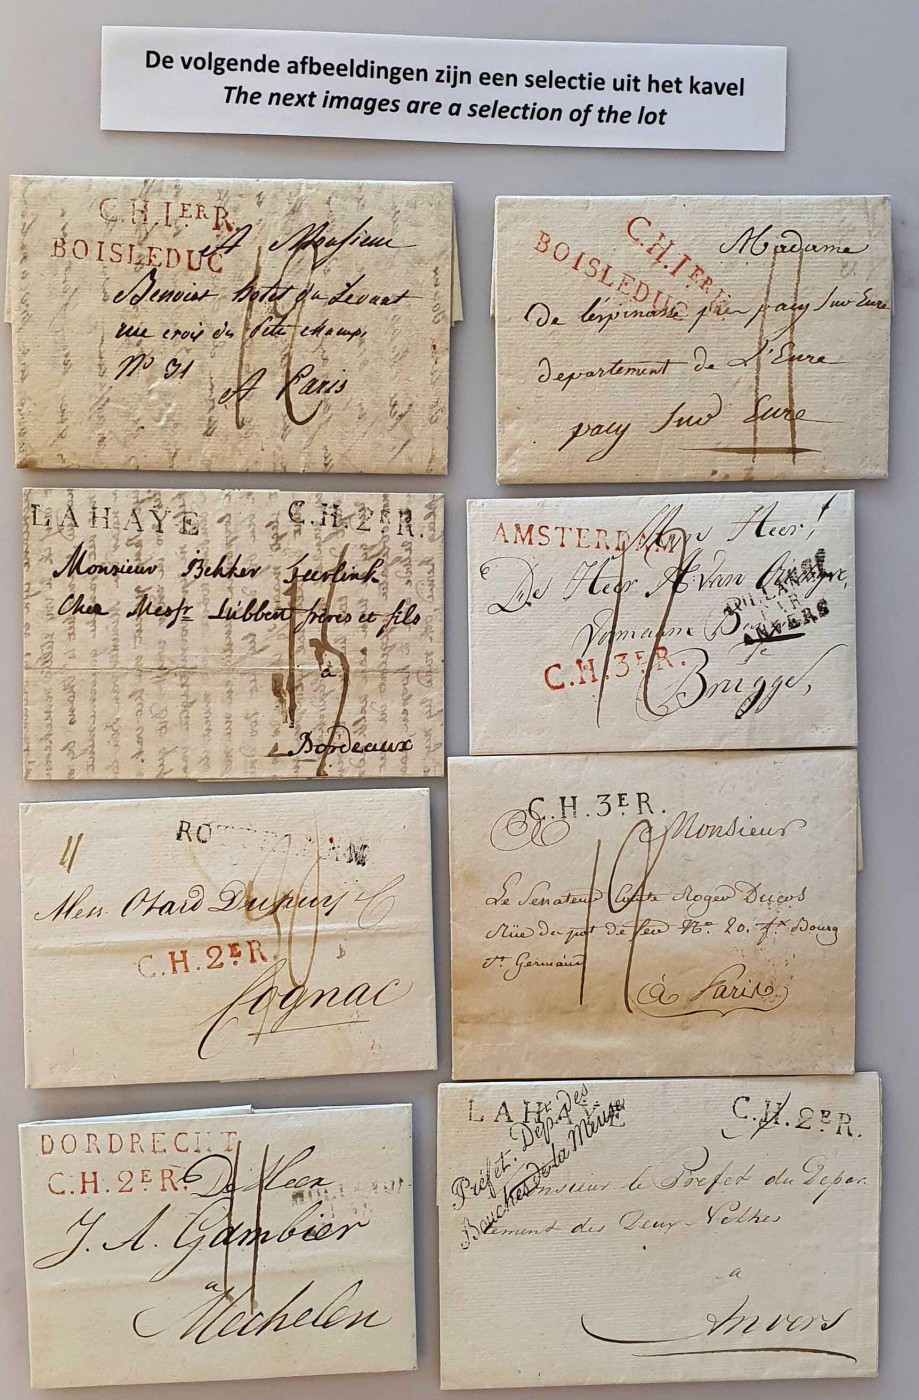 De volgende afbeeldingen zijn een selectie uit het kavel
The next images are a selection of the lot
C.H.1ER R.
BOISLEDUC
A Monsieur
Benoist hotel du Levant
rue croix des petits champs
No 31
A Paris
C.H.1ER R.
BOISLEDUC
Madame
De l'espinasse près pacy Sur Eure
departement de L'Eure
pacy Sur Eure
LAHAYE C.H.2ER.
Monsieur Bekker Teerlink
Chez Messr Lübbert frères et fils
à
Bordeaux
AMSTERDAM
Myn Heer!
De Heer A. van
ANVERS
C.H.3ER.
Brugge,
ROTTERDAM
Mess. Otard Dupuy & C
C.H.2ER.
Cognac
C.H.3ER.
Monsieur
Le Senateur Comte Roger Ducos
Rüe du pot de fer No. 20. fx Bourg
St. Germain
à Paris
DORDRECHT
C.H.2ER.
De Heer
J. A. Gambier
a
Mechelen
LAH C.H.2ER.
Préfet. Dép. des
Bouches de la Meuse
Monsieur le Prefet du Depar-
tement des Deux-Nethes
a
Anvers